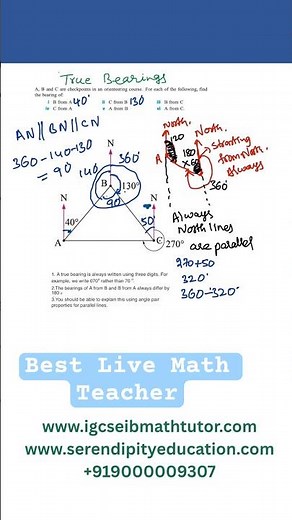 True Bearings
A, B and C are checkpoints in an orienteering course. For each of the following, find
the bearing of:
i B from A 40°
ii C from B 130
iii B from C
iv C from A
v A from B
vi A from C.
AN || BN || CN
360-140-130
= 90
140
N
360°
B
130°
90
N
40°
A
N
50
C
270°
North
North
120
180
A
360°
starting
from North
always
Always
North lines
are parallel
270+50
320°
360-320°
1. A true bearing is always written using three digits. For
example, we write 070° rather than 70°.
2. The bearings of A from B and B from A always differ by
180°
3. You should be able to explain this using angle pair
properties for parallel lines.
Best Live Math
Teacher
www.igcseibmathtutor.com
www.serendipityeducation.com
+919000009307